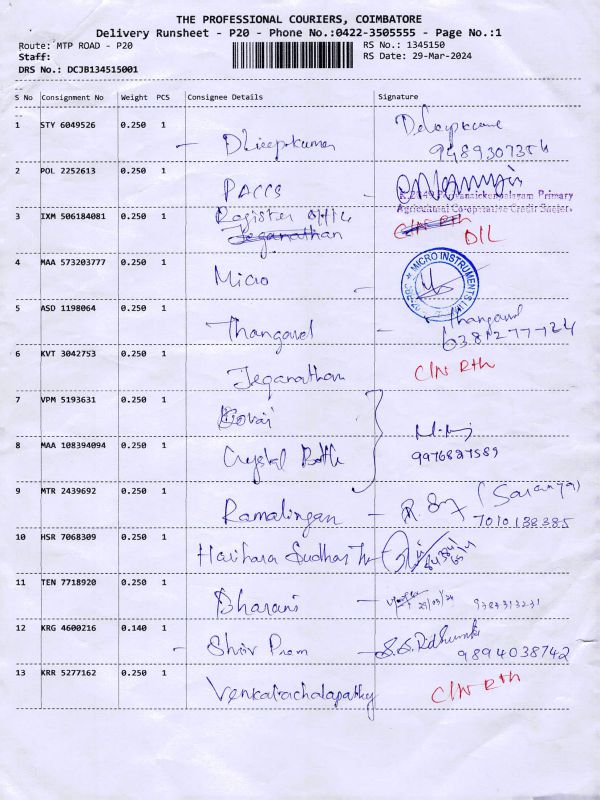 THE PROFESSIONAL COURIERS, COIMBATORE
Delivery Runsheet - P20 - Phone No.:0422-3505555 - Page No.:1
Route: MTP ROAD - P20 RS No.: 1345150
Staff: RS Date: 29-Mar-2024
DRS No.: DCJB134515001
S No Consignment No Weight PCS Consignee Details Signature
1 STY 6049526 0.250 1 Dileepkumar
2 POL 2252613 0.250 1 PACCS
Primary
Agricultural Co-operative Credit
3 IXM 506184081 0.250 1 Register
Jeganathan C/N Rth
D/L
4 MAA 573203777 0.250 1 Micro MICRO INSTRUMENTS
5 ASD 1198064 0.250 1 Thangavel Thangavel
6 KVT 3042753 0.250 1 Jeganathan C/N Rth
7 VPM 5193631 0.250 1 Kovai
8 MAA 108394094 0.250 1 Crystal Bottle 9976827589
9 MTR 2439692 0.250 1 Ramalingan (Saranya)
7010138385
10 HSR 7068309 0.250 1 Harihara Sudhan
11 TEN 7718920 0.250 1 Bharani 29/03/24
12 KRG 4600216 0.140 1 Shiv Prem
9894038742
13 KRR 5277162 0.250 1 Venkatachalapathy C/N Rth